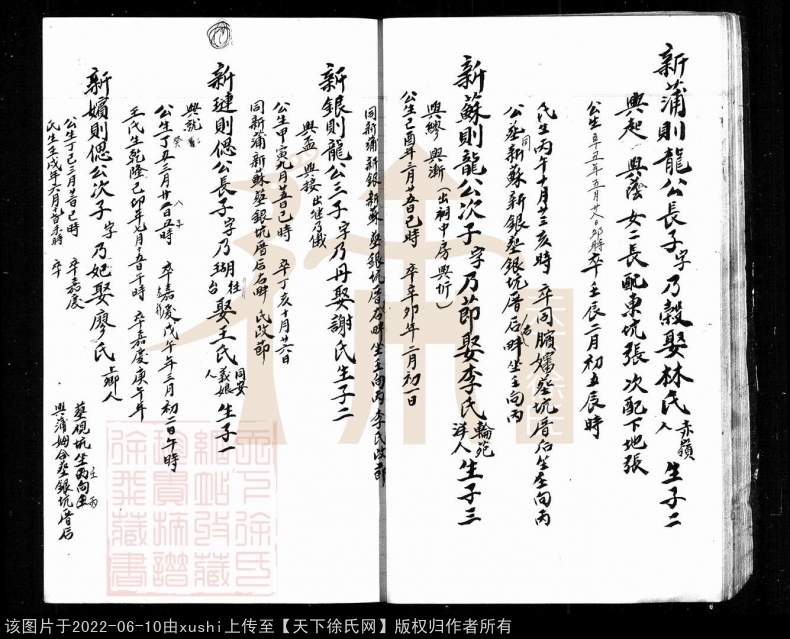 新蒲則龍公長子字乃穀娶林氏赤嶺人生子二
興起 興蔭 女二長配東坑張次配下地張
公生辛丑年五月廿八日卯時卒壬辰二月初五辰時
氏生丙午十月廿三亥時 卒同 塟坑厝后坐壬向丙
公塟同新蘇新銀塟銀坑厝后畔坐壬向丙
新蘇則龍公次子字乃節娶李氏輪苑洋人生子三
興繆 興漸(出祠中房興圻)
公生己酉年三月廿五日巳時 卒辛卯年二月初一日
同新蒲新銀新蘇 塟銀坑厝右畔坐壬向丙 李氏改節
新銀則龍公三子字乃丹娶謝氏生子二
興孟 興接 出继乃儀
公生甲寅九月廿五日巳時 卒丁亥十月廿六日
同新蒲新蘇塟銀坑厝后右畔 氏改節
新璉則偲公長子字乃瑚往台娶王氏同安人義娘生子一
興就
公生丁丑三月廿日丑時 卒嘉慶戊午年三月初二日午時
王氏生乾隆己卯年 月廿五日午時 卒嘉慶庚午年
新嬪則偲公次子字乃妃娶廖氏上鄉人
公生丁巳三月廿日巳時 卒嘉慶
氏生壬戌年六月 時 卒
塟規坑坐丙向壬
興蒲姆仝塟銀坑厝后
天下徐氏網站收藏
徐飛藏書
该图片于2022-06-10由xushi上传至【天下徐氏网】版权归作者所有